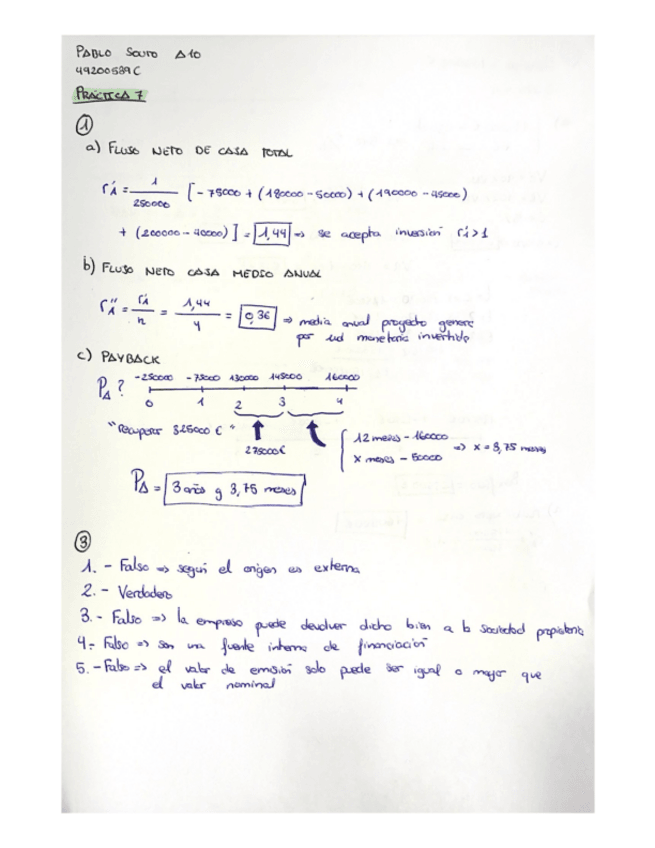 PABLO SOUTO A10
49200589C
PRÁCTICA 7
①
a) FLUJO NETO DE CAJA TOTAL
r'A = 1/250000 [-75000 + (180000-50000) + (190000-45000)
+ (200000-40000)] = 1,44 => se acepta inversión r'A>1
b) FLUJO NETO CAJA MEDIO ANUAL
r''A = r'A/n = 1,44/4 = 0,36 => media anual proyecto genera
por ud monetaria invertida
c) PAYBACK
PA? -250000 -75000 130000 145000 160000
0 1 2 3 4
"Recuperar 325000 €"
275000€
12 meses - 160000
x meses - 50000 => x = 3,75 meses
PA = 3 años y 3,75 meses
③
1. - Falso => según el origen es externa
2. - Verdadero
3. - Falso => la empresa puede devolver dicho bien a la sociedad propietaria
4. - Falso => son una fuente interna de financiación
5. - Falso => el valor de emisión solo puede ser igual o mayor que
el valor nominal